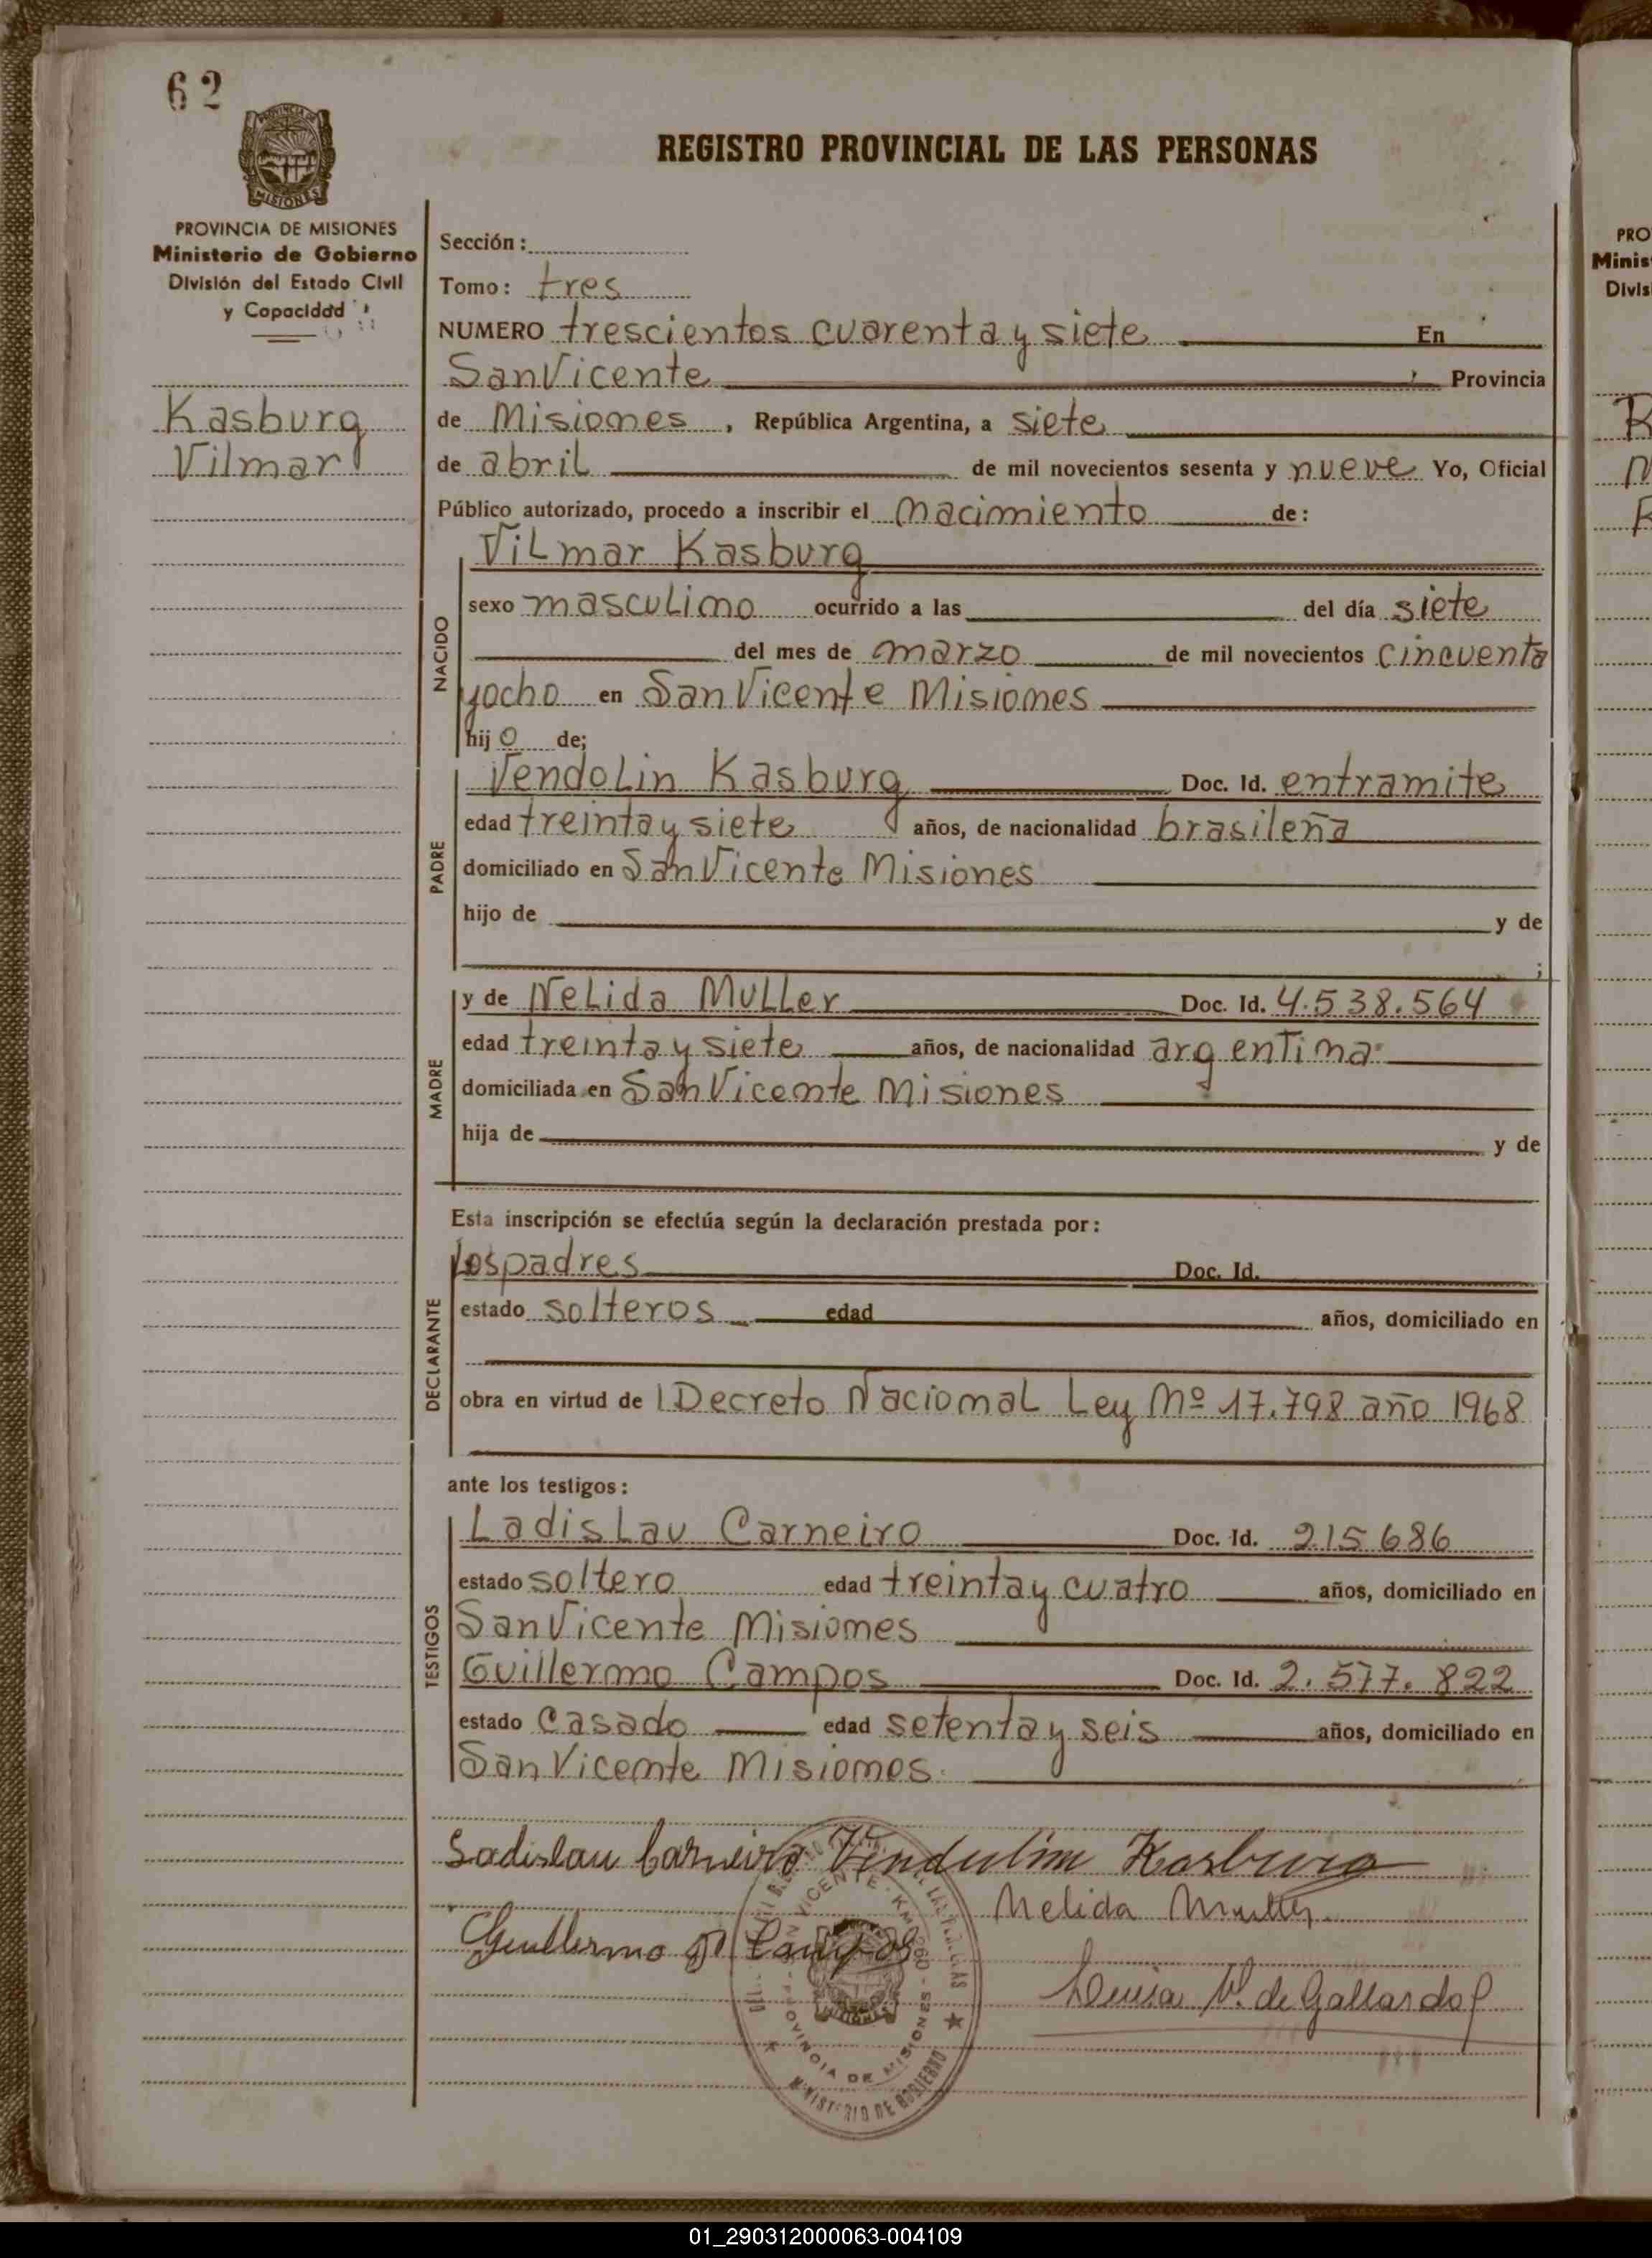 62
REGISTRO PROVINCIAL DE LAS PERSONAS
PROVINCIA DE MISIONES
Ministerio de Gobierno
División del Estado Civil
y Capacidad
Kasburg
Vilmar
Sección:
Tomo: tres
NUMERO trescientos cuarenta y siete En
San Vicente Provincia
de Misiones, República Argentina, a siete
de abril de mil novecientos sesenta y nueve Yo, Oficial
Público autorizado, procedo a inscribir el nacimiento de:
Vilmar Kasburg
NACIDO
sexo masculino ocurrido a las del día siete
del mes de marzo de mil novecientos cincuenta
y ocho en San Vicente Misiones
hijo de;
Vendolin Kasburg Doc. Id. en tramite
PADRE
edad treinta y siete años, de nacionalidad brasileña
domiciliado en San Vicente Misiones
hijo de y de
;
y de Nelida Muller Doc. Id. 4.538.564
MADRE
edad treinta y siete años, de nacionalidad argentina
domiciliada en San Vicente Misiones
hija de y de
Esta inscripción se efectúa según la declaración prestada por:
los padres Doc. Id.
DECLARANTE
estado solteros edad años, domiciliado en
obra en virtud de l Decreto Nacional Ley Nº 17.798 año 1968
ante los testigos:
Ladislau Carneiro Doc. Id. 215686
TESTIGOS
estado soltero edad treinta y cuatro años, domiciliado en
San Vicente Misiones
Guillermo Campos Doc. Id. 2.577.822
estado casado edad setenta y seis años, domiciliado en
San Vicente Misiones.
Ladislau Carneiro Vindulim Kasburg
Nelida Muller
Guillermo Campos
Luisa V. de Gallardo
SAN VICENTE - KM. 960 - PROVINCIA DE MISIONES
MINISTERIO DE GOBIERNO
PRO
Minis
Divis
01_290312000063-004109